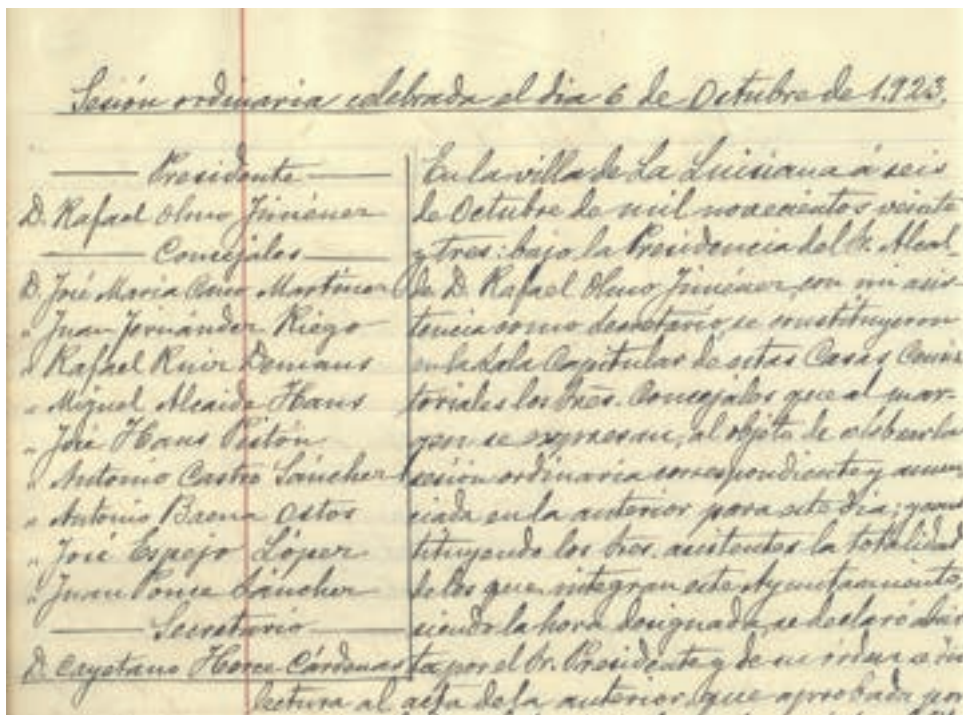 Sesión ordinaria celebrada el dia 6 de Octubre de 1.923.
Presidente
D. Rafael Olmo Jiménez
Concejales
D. José Maria Cano Martínez
" Juan Fernández Riego
" Rafael Ruiz Demans
" Miguel Alcaide Hans
" José Hans Pistón
" Antonio Castro Sánchez
" Antonio Baena Ostos
" José Espejo López
" Juan Ponce Sánchez
Secretario
D. Cayetano Cárdenas
En la villa de La Luisiana á seis
de Octubre de mil novecientos veinte
y tres: bajo la Presidencia del Sr. Alcal-
de D. Rafael Olmo Jiménez, con mi asis-
tencia como Secretario, se constituyeron
en la Sala Capitular de estas Casas Consis
toriales los Sres. Concejales que al mar-
gen se expresan, al objeto de celebrar la
sesión ordinaria correspondiente y anun
ciada en la anterior para este dia; y cons
tituyendo los Sres. asistentes la totalidad
de los que integran este Ayuntamiento,
siendo la hora designada, se declaró abier
ta por el Sr. Presidente y de su orden se
lectura al acta de la anterior que aprobada por